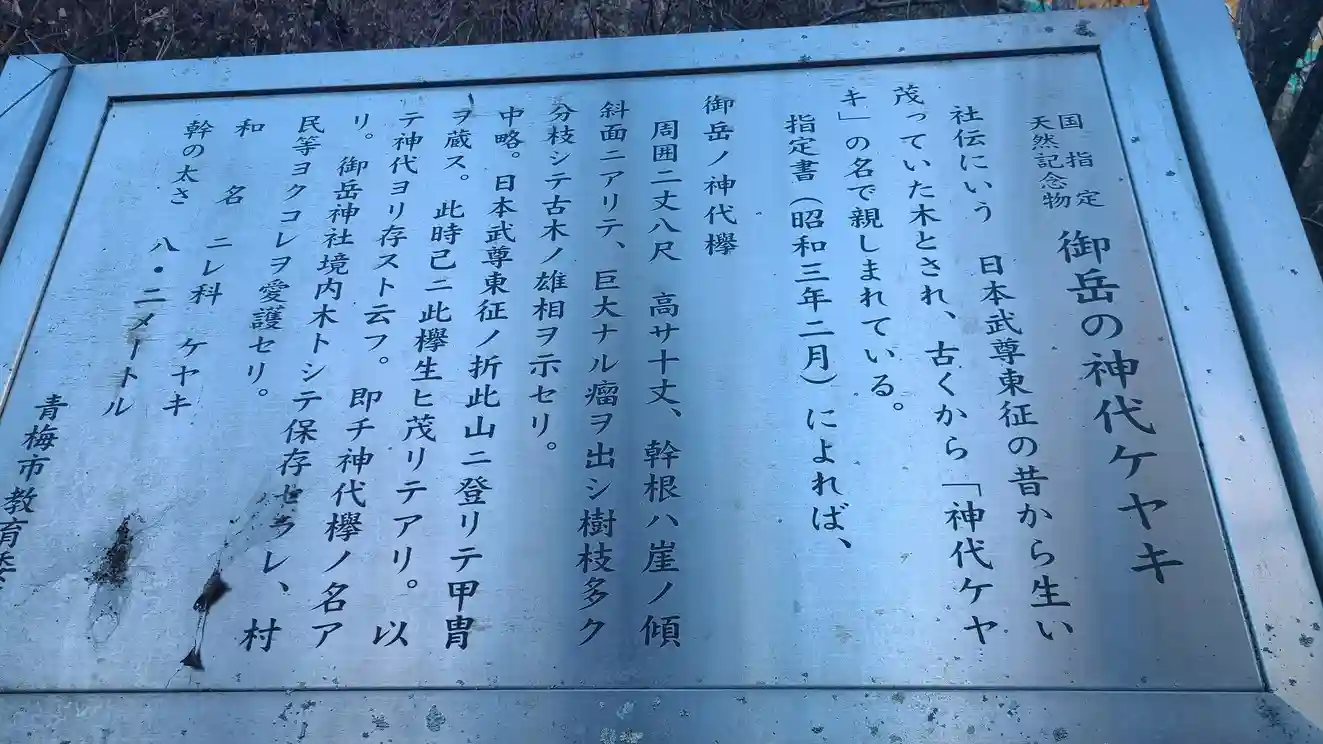 国指定
天然記念物
御岳の神代ケヤキ
社伝にいう 日本武尊東征の昔から生い
茂っていた木とされ、古くから「神代ケヤ
キ」の名で親しまれている。
指定書(昭和三年二月)によれば、
御岳ノ神代欅
周囲二丈八尺 高サ十丈、幹根ハ崖ノ傾
斜面ニアリテ、巨大ナル瘤ヲ出シ樹枝多ク
分枝シテ古木ノ雄相ヲ示セリ。
中略。日本武尊東征ノ折此山ニ登リテ甲冑
ヲ蔵ス。此時已ニ此欅生ヒ茂リテアリ。以
テ神代ヨリ存スト云フ。即チ神代欅ノ名ア
リ。御岳神社境内木トシテ保存セラレ、村
民等ヨクコレヲ愛護セリ。
和名 ニレ科 ケヤキ
幹の太さ 八・二メートル
青梅市教育委